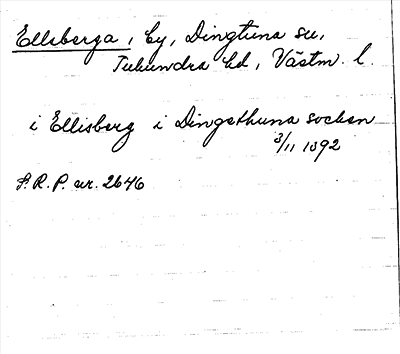 Ellsberga, by, Dingtuna sn,
Tuhundra hd, Västm. l.
i Ellisberg i Dingethuna sochen
3/11 1392
S.R.P. nr. 2646